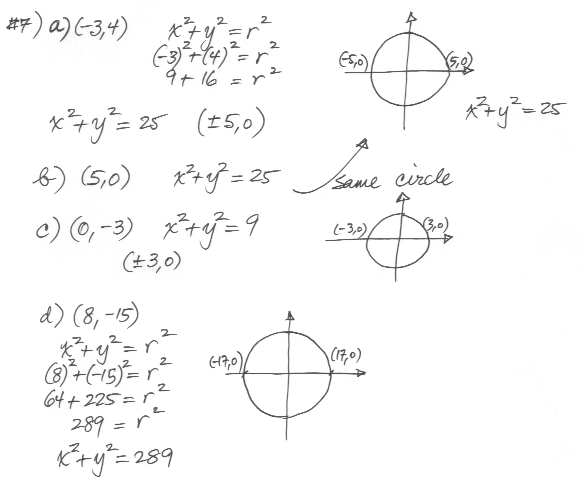 #7) a) (-3,4) x²+y²=r²
(-3)²+(4)²=r²
9+16 = r²
x²+y²=25 (±5,0)
(-5,0) (5,0)
x²+y²=25
b) (5,0) x²+y²=25 same circle
c) (0,-3) x²+y²=9
(±3,0)
(-3,0) (3,0)
d) (8,-15)
x²+y²=r²
(8)²+(-15)²=r²
64+225=r²
289=r²
x²+y²=289
(-17,0) (17,0)